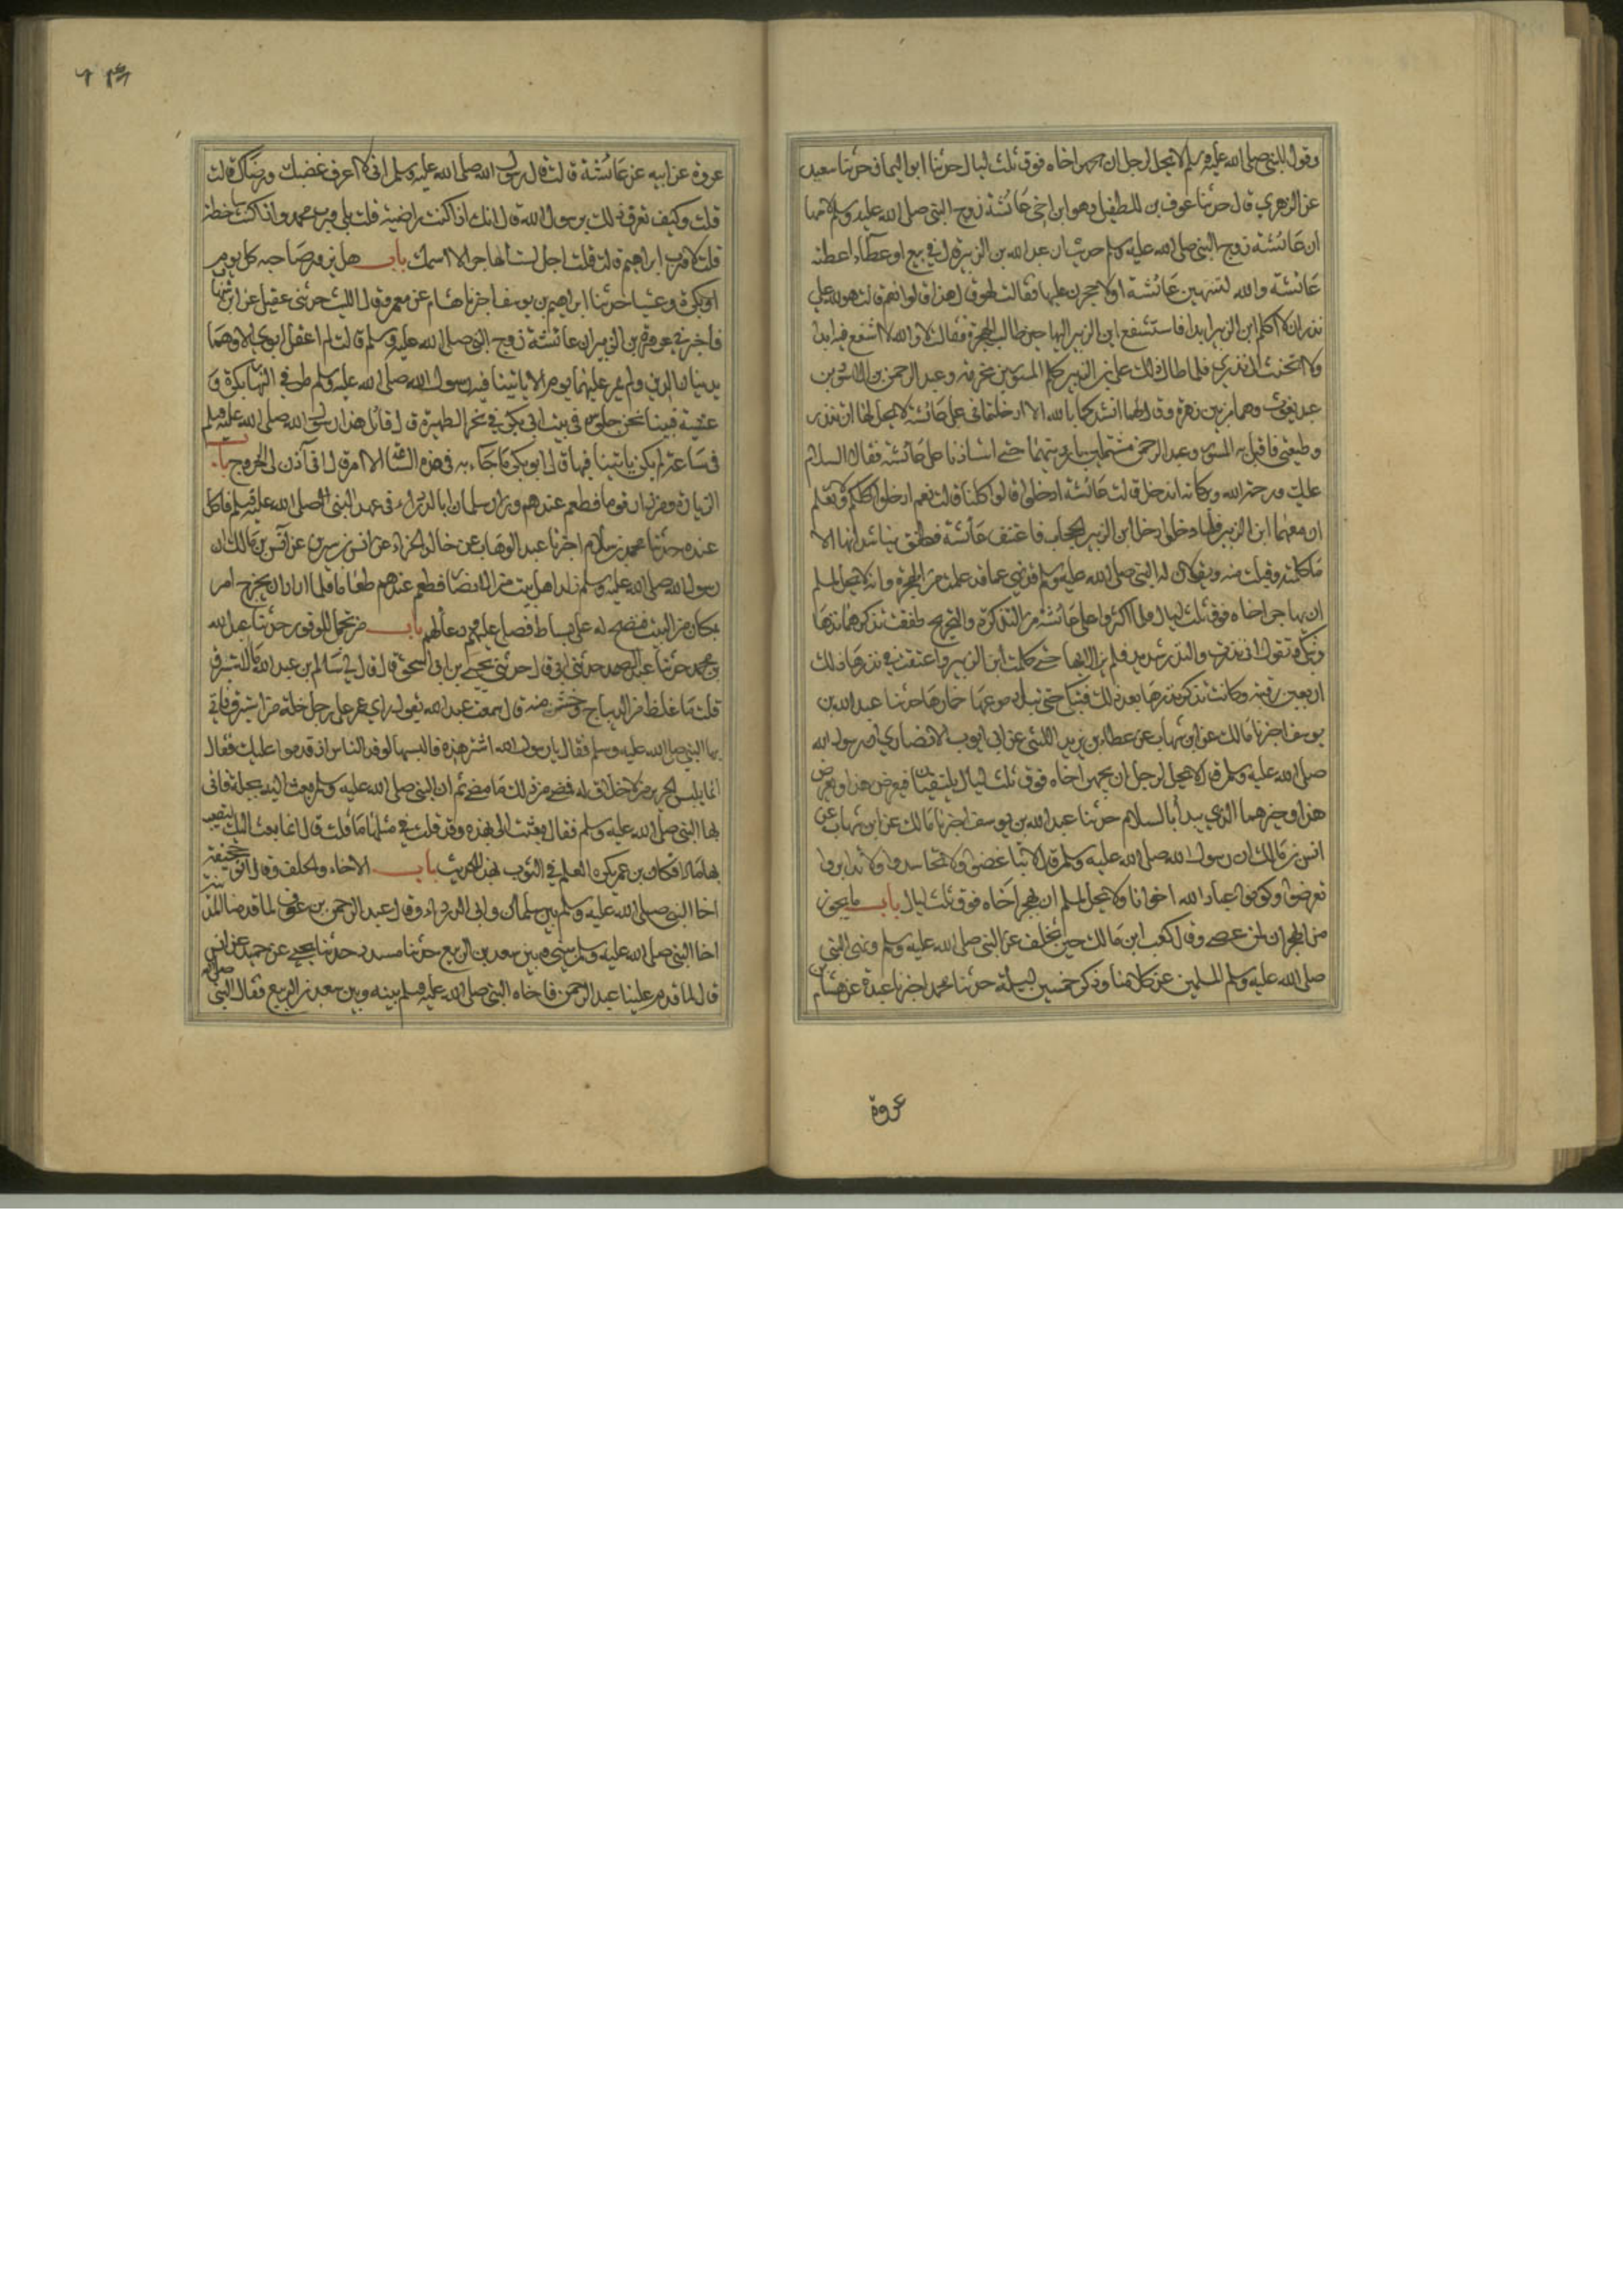 وقول النبي صلى الله عليه وسلم لا يحل لرجل ان يهجر اخاه فوق ثلث ليال حدثنا ابو اليمان حدثنا سعيد
عن الزهري قال حدثنا عوف بن الطفيل وهو ابن اخي عائشة زوج النبي صلى الله عليه وسلم لامها
ان عائشة زوج النبي صلى الله عليه وسلم حدثت ان عبد الله بن الزبير قال في بيع او عطاء اعطته
عائشة والله لتنتهين عائشة او لاحجرن عليها فقالت اهو قال هذا قالوا نعم قالت هو لله علي
نذر ان لا اكلم ابن الزبير ابدا فاستشفع ابن الزبير اليها حين طالت الهجرة فقالت لا والله لا اشفع فيه ابدا
ولا اتحنث الى نذري فلما طال ذلك على ابن الزبير كلم المسور بن مخرمة وعبد الرحمن بن الاسود بن
عبد يغوث وهما من بني زهرة وقال لهما انشدكما بالله الا ادخلتماني على عائشة لا يحل لها ان تنذر
قطيعتي فاقبل به المسور وعبد الرحمن مشتملين بارديتهما حتى استاذنا على عائشة فقالا السلام
عليك ورحمة الله وبركاته اندخل قالت عائشة ادخلوا قالوا كلنا قالت نعم ادخلوا كلكم ولا تعلم
ان معهما ابن الزبير فلما دخلوا دخل ابن الزبير الحجاب فاعتنق عائشة فطفق يناشدانها الا
ما كلمته وقبلت منه ويقولان ان النبي صلى الله عليه وسلم قد نهى عما قد علمت من الهجرة وانه لا يحل لمسلم
ان يهاجر اخاه فوق ثلث ليال فلما اكثروا على عائشة من التذكرة والتحريج طفقت تذكرهما نذرها
وتبكي وتقول اني نذرت والنذر شديد فلم يزالا بها حتى كلمت ابن الزبير واعتقت في نذرها ذلك
اربعين رقبة وكانت تذكر نذرها بعد ذلك فتبكي حتى تبل دموعها خمارها حدثنا عبد الله بن
يوسف اخبرنا مالك عن ابن شهاب عن عطاء بن يزيد الليثي عن ابي ايوب الانصاري ان رسول الله
صلى الله عليه وسلم قال لا يحل لرجل ان يهجر اخاه فوق ثلث ليال يلتقيان فيعرض هذا ويعرض
هذا وخيرهما الذي يبدأ بالسلام حدثنا عبد الله بن يوسف اخبرنا مالك عن ابن شهاب عن
انس بن مالك ان رسول الله صلى الله عليه وسلم قال لا تباغضوا ولا تحاسدوا ولا تدابروا
وكونوا عباد الله اخوانا ولا يحل لمسلم ان يهجر اخاه فوق ثلث ليال باب ما يجوز
من الهجران لمن عصى وقال كعب ابن مالك حين تخلف عن النبي صلى الله عليه وسلم ونهى النبي
صلى الله عليه وسلم المسلمين عن كلامنا وذكر خمسين ليلة حدثنا محمد اخبرنا عبدة عن هشام بن
عروة
عروة عن ابيه عن عائشة قالت قال رسول الله صلى الله عليه وسلم اني لا اعرف غضبك ورضاك قالت
قلت وكيف تعرف ذلك يرسول الله قال انك اذا كنت راضية قلت بلى ورب محمد واذا كنت ساخطة
قلت لا ورب ابراهيم قالت قلت اجل لست اهاجر الا اسمك باب هل يزور صاحبه كل يوم
او بكرة وعشيا حدثنا ابراهيم بن يوسف اخبرنا هشام عن معمر وقال الليث حدثني عقيل عن ابن شهاب
فاخبرني عروة بن الزبير ان عائشة زوج النبي صلى الله عليه وسلم قالت لم اعقل ابوي الا وهما
يدينان الدين ولم يمر عليهما يوم الا ياتينا فيه رسول الله صلى الله عليه وسلم طرفي النهار بكرة و
عشية فبينا نحن جلوس في بيت ابي بكر في نحر الظهيرة قال قائل هذا رسول الله صلى الله عليه وسلم
في ساعة لم يكن ياتينا فيها قال ابو بكر ما جاء به في هذه الساعة الا امر قال اني آذن لي الخروج باب
الزيارة ومن زار قوما فطعم عندهم وزار سلمان ابا الدرداء في عهد النبي صلى الله عليه وسلم فاكل
عنده حدثنا محمد بن سلام اخبرنا عبد الوهاب عن خالد الحذاء عن انس بن سيرين عن انس بن مالك ان
رسول الله صلى الله عليه وسلم زار اهل بيت من الانصار فطعم عندهم طعاما فلما اراد ان يخرج امر
بمكان من البيت فنضح له على بساط فصلى عليه ودعا لهم باب من تجمل للوفود حدثنا عبد الله
بن محمد حدثنا عبد الصمد حدثني ابي قال حدثني يحيى بن ابي اسحق قال قال لي سالم بن عبد الله ما الاستبرق
قلت ما غلظ من الديباج وخشن منه قال سمعت عبد الله يقول راي عمر على رجل حلة من استبرق فاتى
بها النبي صلى الله عليه وسلم فقال يا رسول الله اشتر هذه فالبسها لوفد الناس اذا قدموا عليك فقال
انما يلبس الحرير من لا خلاق له فمضى من ذلك ما مضى ثم ان النبي صلى الله عليه وسلم بعث اليه بحلة فاتى
بها النبي صلى الله عليه وسلم فقال بعثت الي بهذه وقد قلت في مثلها ما قلت قال انما بعثت اليك لتصيب
بها مالا فكان ابن عمر يكره العلم في الثوب لهذا الحديث باب الاخاء والحلف وقال ابو جحيفة
اخا النبي صلى الله عليه وسلم بين سلمان وابي الدرداء وقال عبد الرحمن بن عوف لما قدمنا المدينة
اخا النبي صلى الله عليه وسلم بيني وبين سعد بن الربيع حدثنا مسدد حدثنا يحيى عن حميد عن انس
قال لما قدم علينا عبد الرحمن فاخاه النبي صلى الله عليه وسلم بينه وبين سعد بن الربيع فقال النبي صلى الله